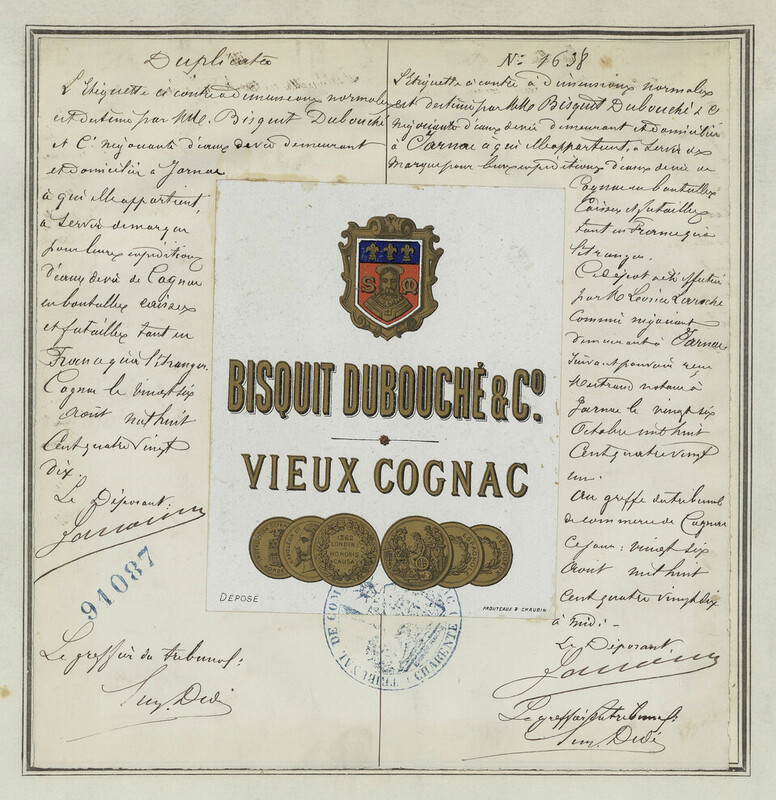 Duplicata
L'Etiquette ci contre à dimensions normales
est destinée par MM. Bisquit Dubouché
et Cie négociants d'eaux de vie demeurant
et domicilié à Jarnac
à qui elle appartient,
à servir de marque
pour leurs expéditions
d'eaux de vie de Cognac
en bouteilles caisses
et futailles tant en
France qu'à l'étranger.
Cognac le vingt six
Août mil huit
Cent quatre vingt
dix.
Le Déposant:
91087
Le greffier du tribunal:
No 1638
L'Etiquette ci contre à dimensions normales
est destinée par MM. Bisquit Dubouché & Cie
négociants d'eaux de vie demeurant et domicilié
à Jarnac à qui elle appartient, à servir de
marque pour leurs expéditions d'eaux de vie de
Cognac en bouteilles
caisses et futailles
tant en France qu'à
l'étranger.
Ce dépôt a été effectué
par M Laroche
négociant
demeurant à Jarnac
suivant pouvoir reçu
notaire à
Jarnac le vingt six
Octobre mil huit
Cent quatre vingt
un.
Au greffe du tribunal
de commerce de Cognac
ce jour: vingt six
Août mil huit
Cent quatre vingt dix
à midi.
Le Déposant
Le greffier du tribunal:
S Q
BISQUIT DUBOUCHÉ & Co.
VIEUX COGNAC
1862
LONDINI
HONORIS
CAUSA
DÉPOSÉ
PROUTEAUX & CHAURIN
TRIBUNAL DE COM
C CHARENTE